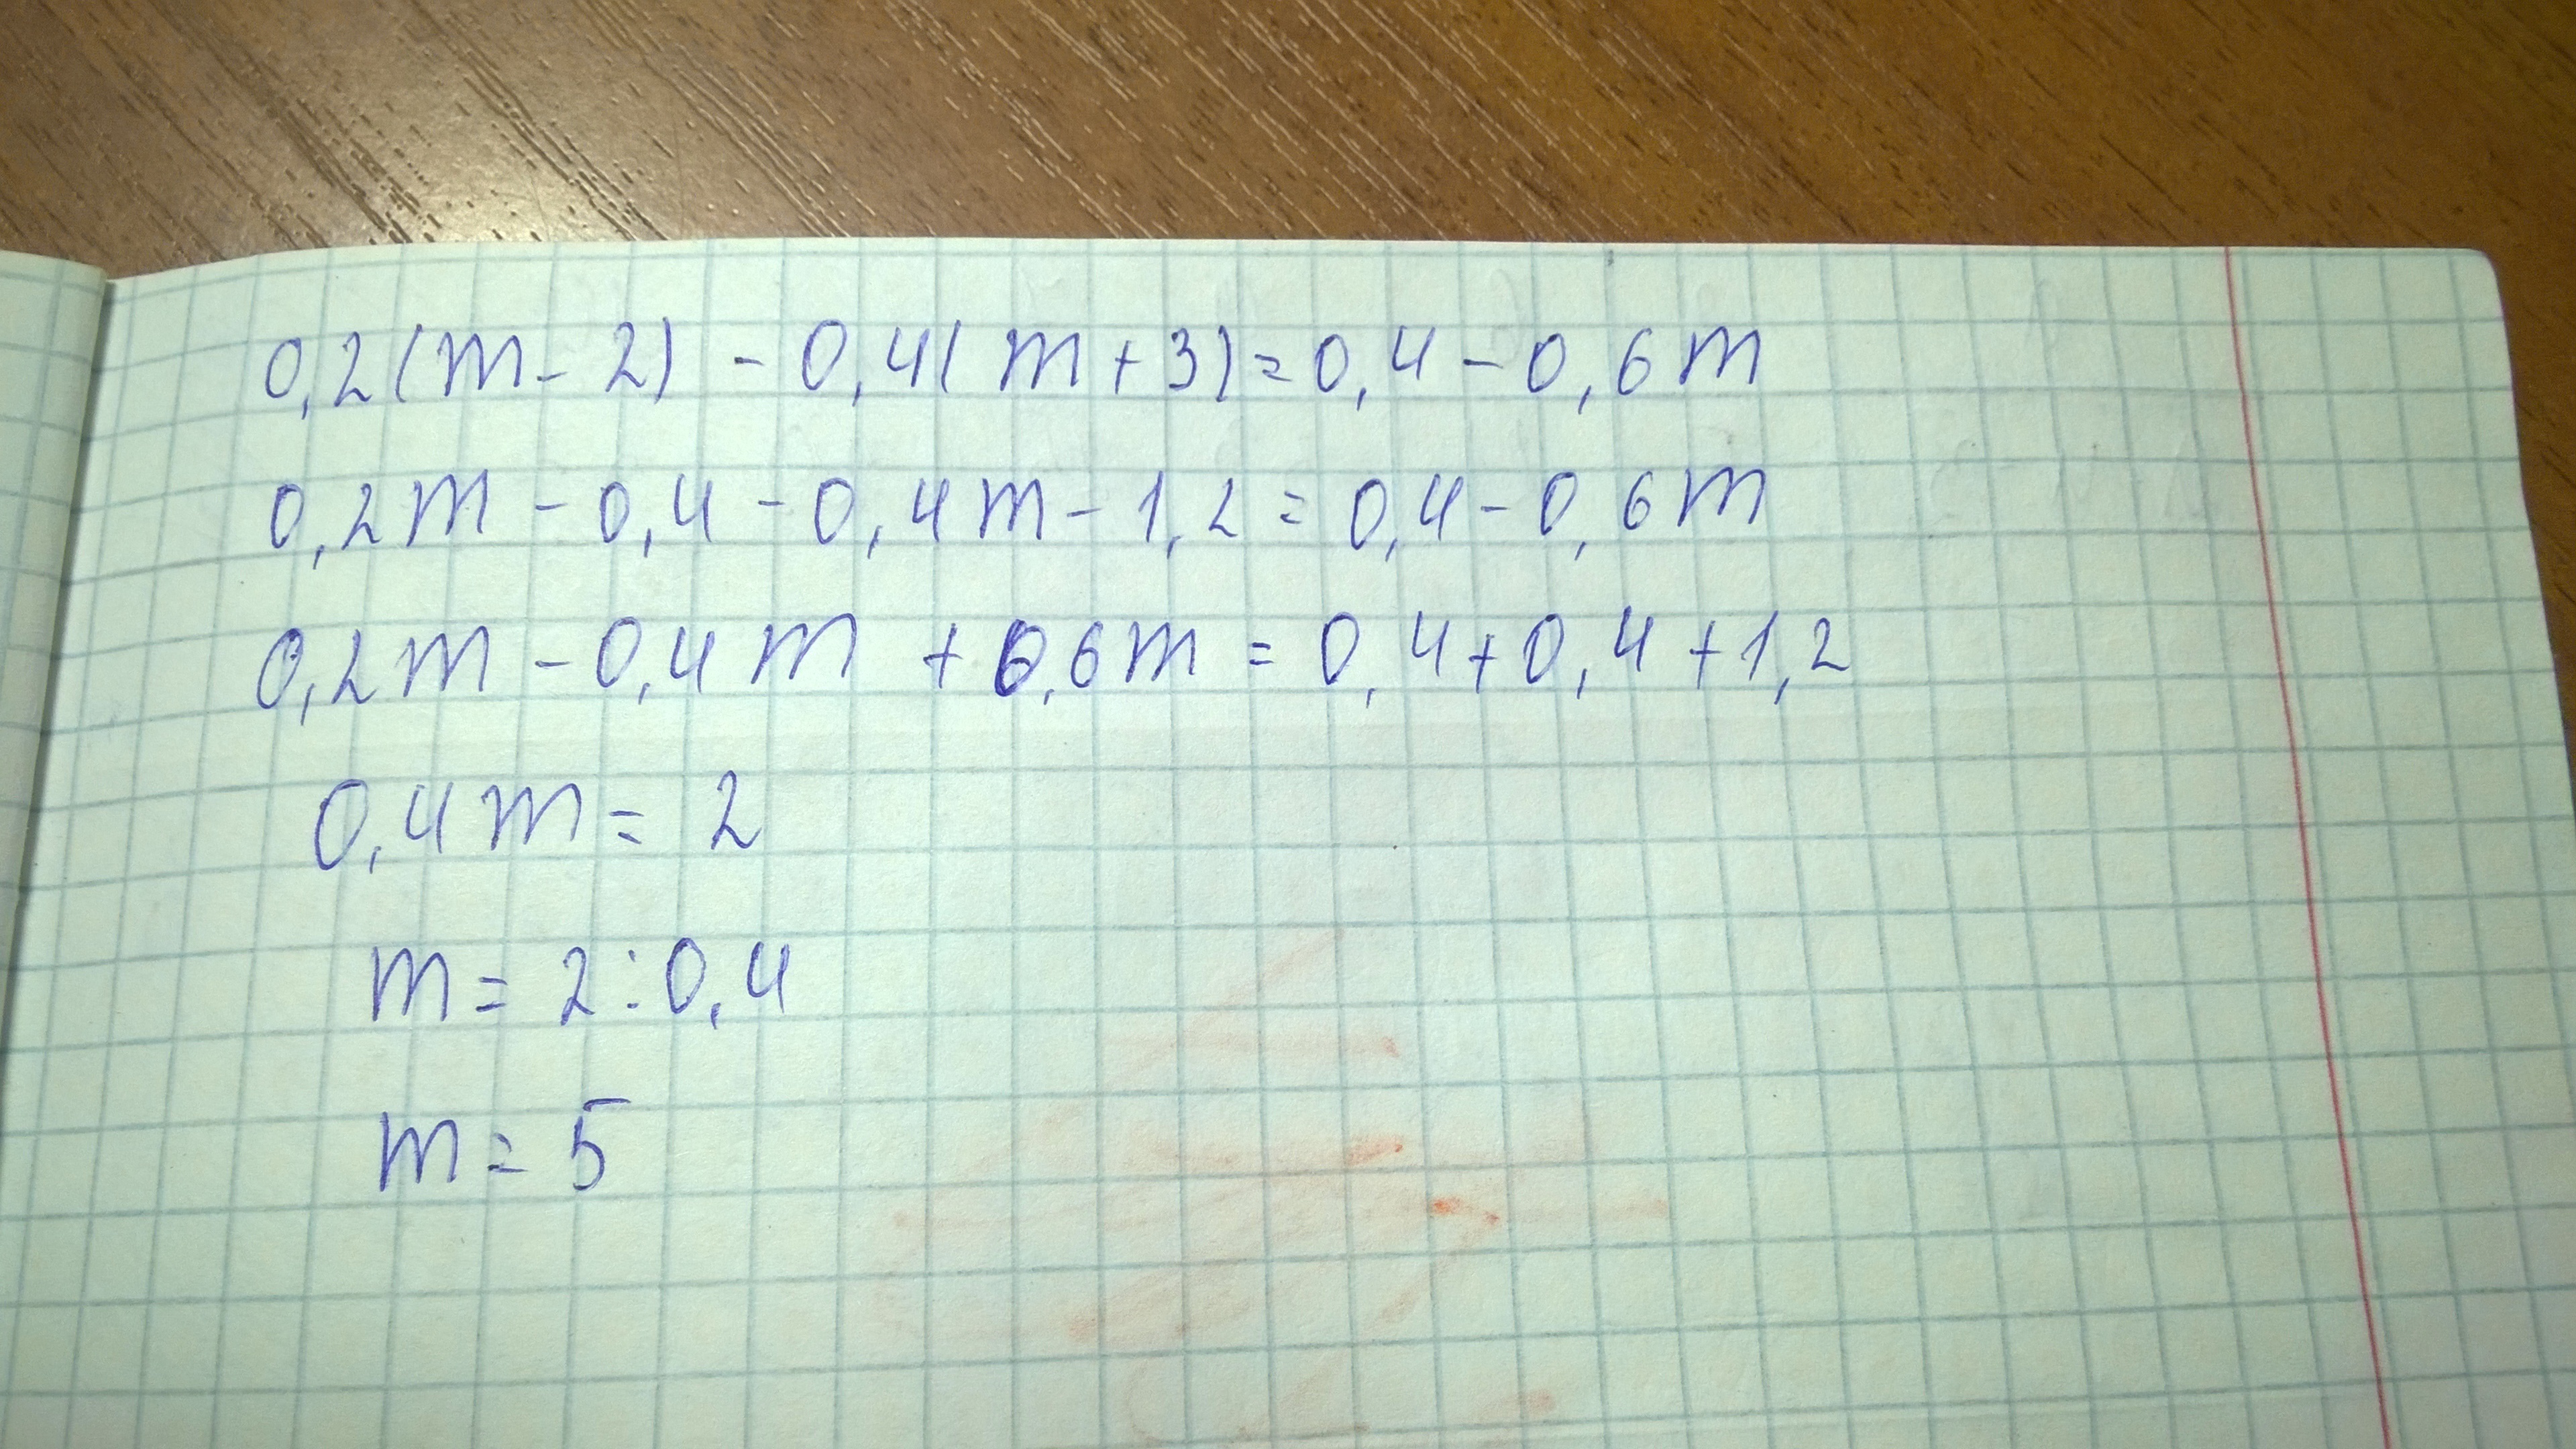 0,2(m-2) - 0,4(m+3)=0,4-0,6m
0,2m-0,4-0,4m-1,2=0,4-0,6m
0,2m-0,4m +0,6m=0,4+0,4+1,2
0,4m= 2
m= 2:0,4
m= 5